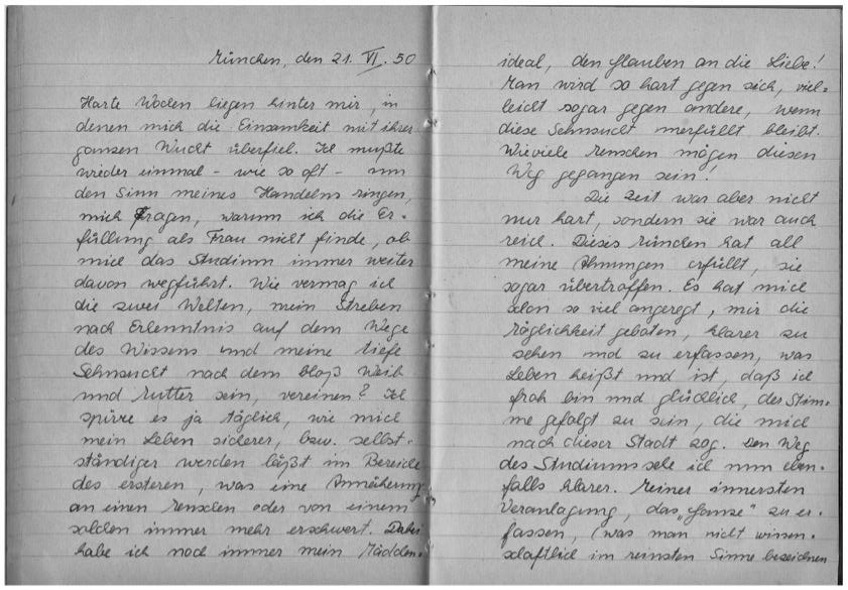 München, den 21. VI. 50
Harte Wochen liegen hinter mir, in
denen mich die Einsamkeit mit ihrer
ganzen Wucht überfiel. Ich mußte
wieder einmal - wie so oft - um
den Sinn meines Handelns ringen,
mich fragen, warum ich die Er-
füllung als Frau nicht finde, ob
mich das Studium immer weiter
davon wegführt. Wie vermag ich
die zwei Welten, mein Streben
nach Erkenntnis auf dem Wege
des Wissens und meine tiefe
Sehnsucht nach dem bloß Weib
und Mutter sein, vereinen? Ich
spüre es ja täglich, wie mich
mein Leben sicherer, bzw. selbst-
ständiger werden läßt im Bereiche
des ersteren, was eine Annäherung
an einen Menschen oder von einem
solchen immer mehr erschwert. Dabei
habe ich noch immer mein Mädchen-
ideal, den Glauben an die Liebe!
Man wird so hart gegen sich, viel-
leicht sogar gegen andere, wenn
diese Sehnsucht unerfüllt bleibt.
Wieviele Menschen mögen diesen
Weg gegangen sein!
Die Zeit war aber nicht
nur hart, sondern sie war auch
reich. Dieses München hat all
meine Ahnungen erfüllt, sie
sogar übertroffen. Es hat mich
schon so viel angeregt, mir die
Möglichkeit geboten, klarer zu
sehen und zu erfassen, was
Leben heißt und ist, daß ich
froh bin und glücklich, der Stim-
me gefolgt zu sein, die mich
nach dieser Stadt zog. Den Weg
des Studiums sehe ich nun eben-
falls klarer. Meiner innersten
Veranlagung, das „Ganze" zu er-
fassen, (was man nicht wissen-
schaftlich im reinsten Sinne bezeichnen